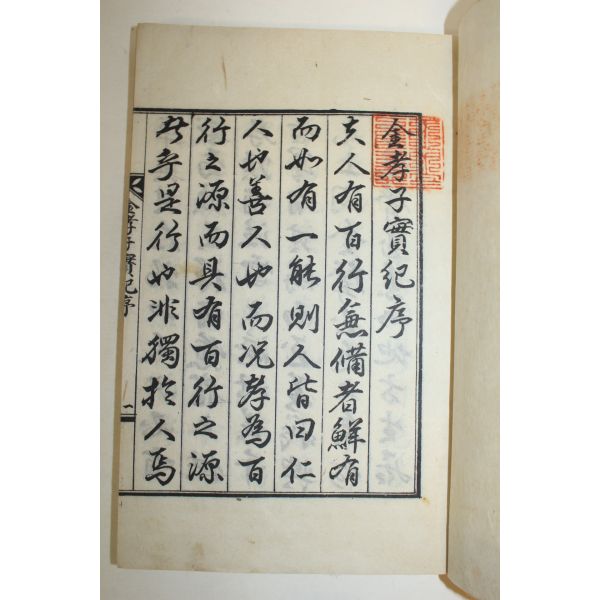 金孝子實紀序
夫人有百行兼備者鮮有
而如有一能則人皆曰仁
人也善人也而况孝為百
行之源而具有百行之源
者乎是行也非獨於人焉
金孝子實紀序
一